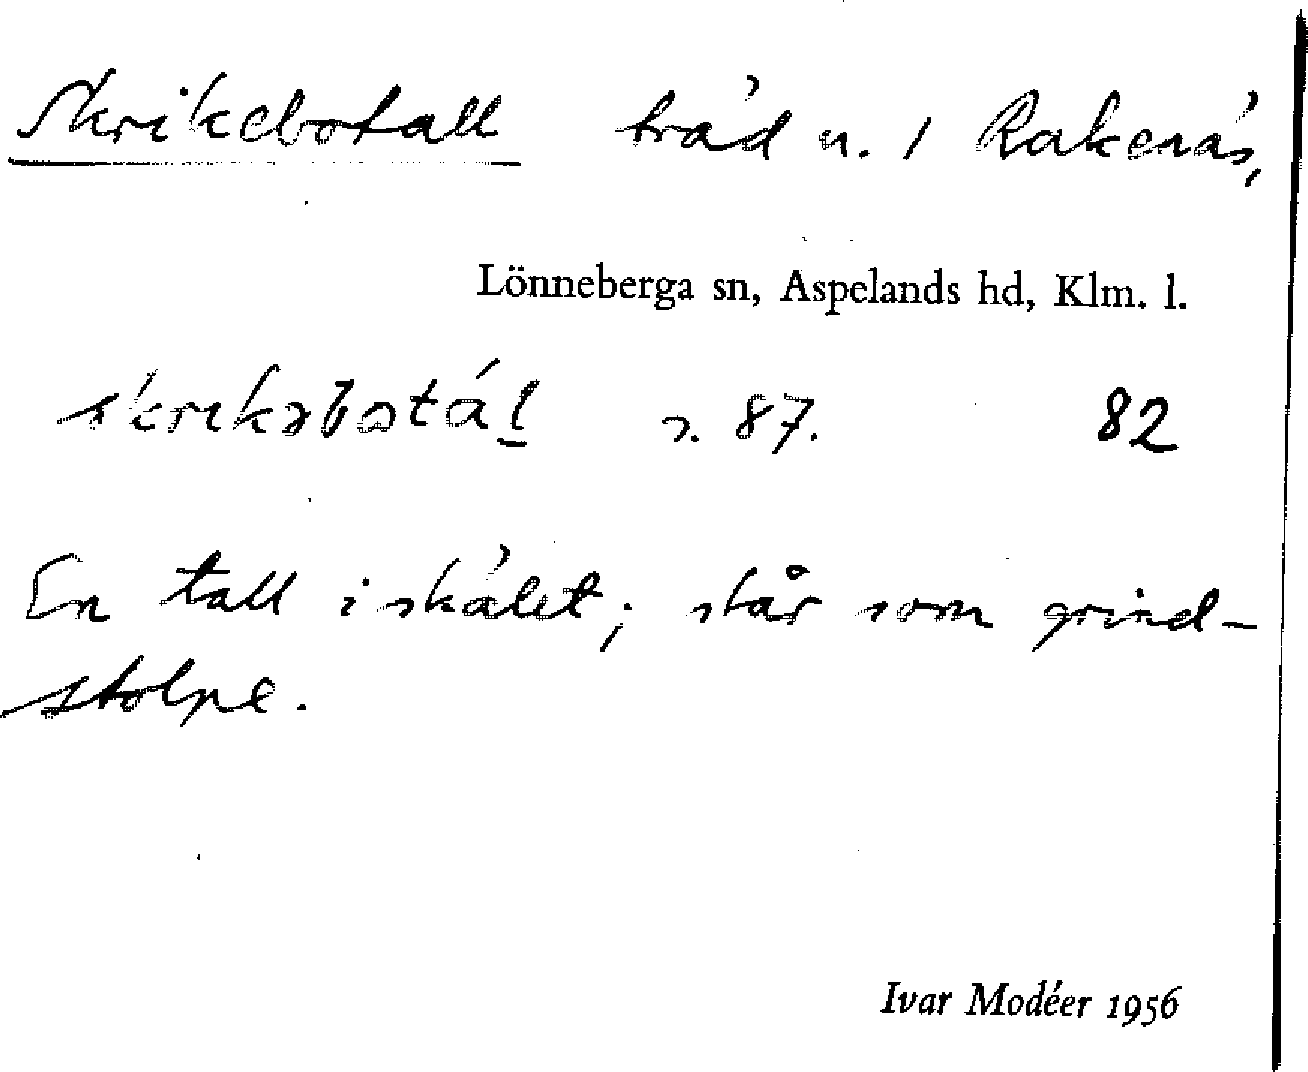 Skrikebotall träd n. 1 Rakenäs,
Lönneberga sn, Aspelands hd, Klm. l.
skrikəbotál s. 87. 82
En tall i skälet; står som grind-
stolpe.
Ivar Modéer 1956